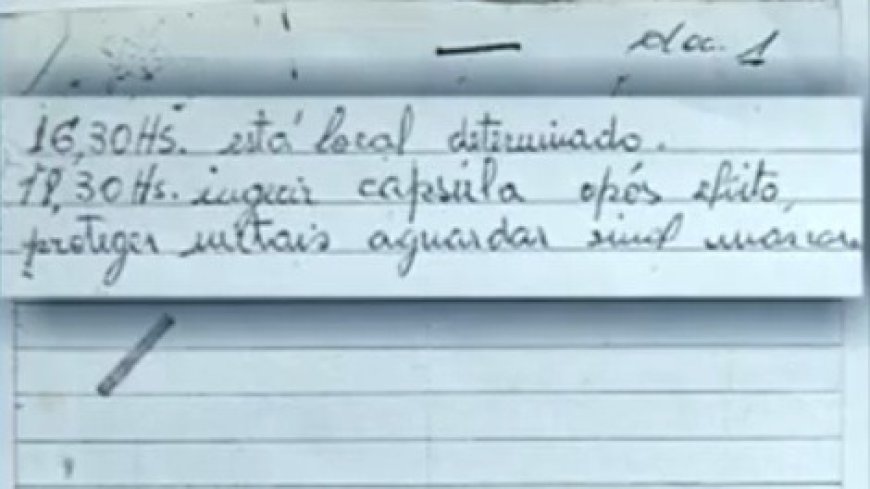 doc. 1
16,30 Hs. está local determinado.
18,30 Hs. ingerir cápsula após efeito,
proteger metais aguardar sinal máscara